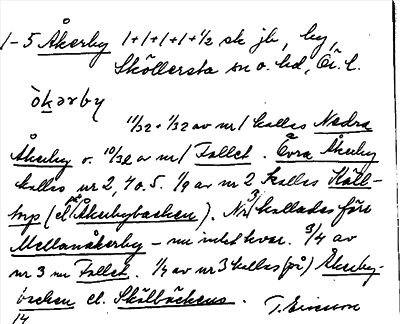 1-5 Åkerby 1+1+1+1+½ sk jb, by,
Sköllersta sn o. hd, Ör. l.
òkərby
11/32 + 1/32 av nr 1 kallas Nedra
Åkerby o. 10/32 av nr 1 Fallet. Övra Åkerby
kallas nr 2, 4 o. 5. 1/9 av nr 2 kallas Käll-
torp (el. Åkerbybacken). Nr 3/ kallades förr
Mellanåkerby - nu intet kvar. 3/4 av
nr 3 nu Fallet. 1/4 av nr 3 kallas (på) Åkerby-
bäcken el. Skölbäckens.
T. Ericsson
14